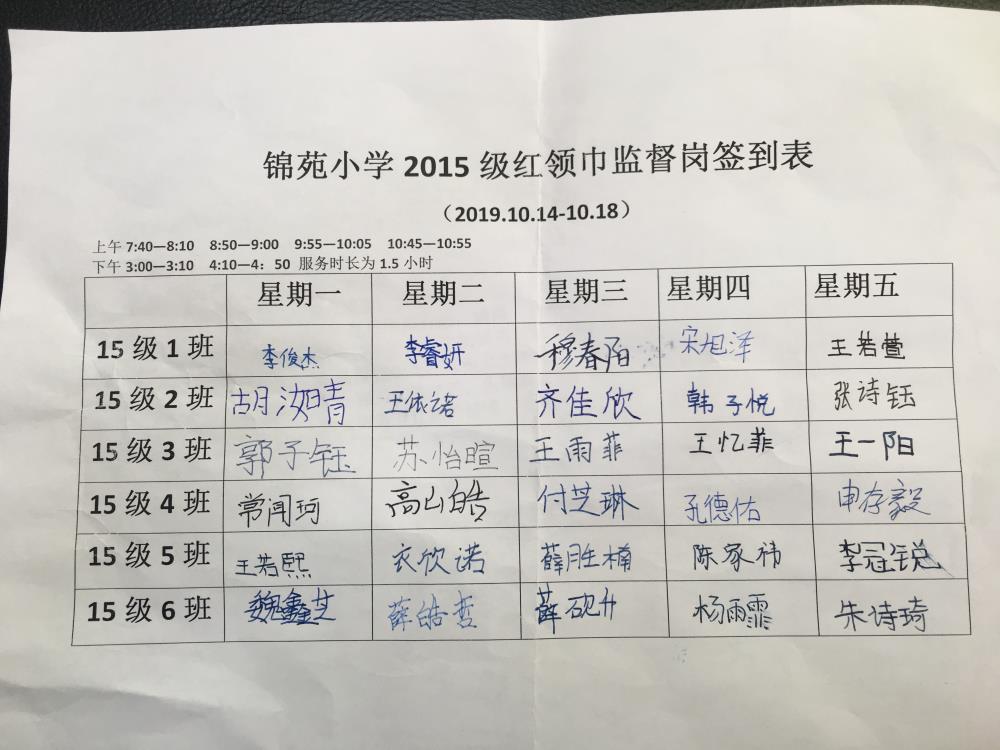 锦苑小学 2015 级红领巾监督岗签到表
（2019.10.14-10.18）
上午 7:40—8:10 8:50—9:00 9:55—10:05 10:45—10:55
下午 3:00—3:10 4:10—4：50 服务时长为 1.5 小时
星期一 星期二 星期三 星期四 星期五
15 级 1 班 李俊杰 李睿妍 穆春阳 宋旭泽 王若萱
15 级 2 班 胡汝晴 王依诺 齐佳欣 韩子悦 张诗钰
15 级 3 班 郭子钰 苏怡暄 王雨菲 王忆菲 王一阳
15 级 4 班 常闻珂 高山皓 付芝琳 孔德佑 申存毅
15 级 5 班 王若熙 衣欣诺 薛胜楠 陈家祎 李冠锐
15 级 6 班 魏鑫芝 薛皓 薛砚升 杨雨霏 朱诗琦